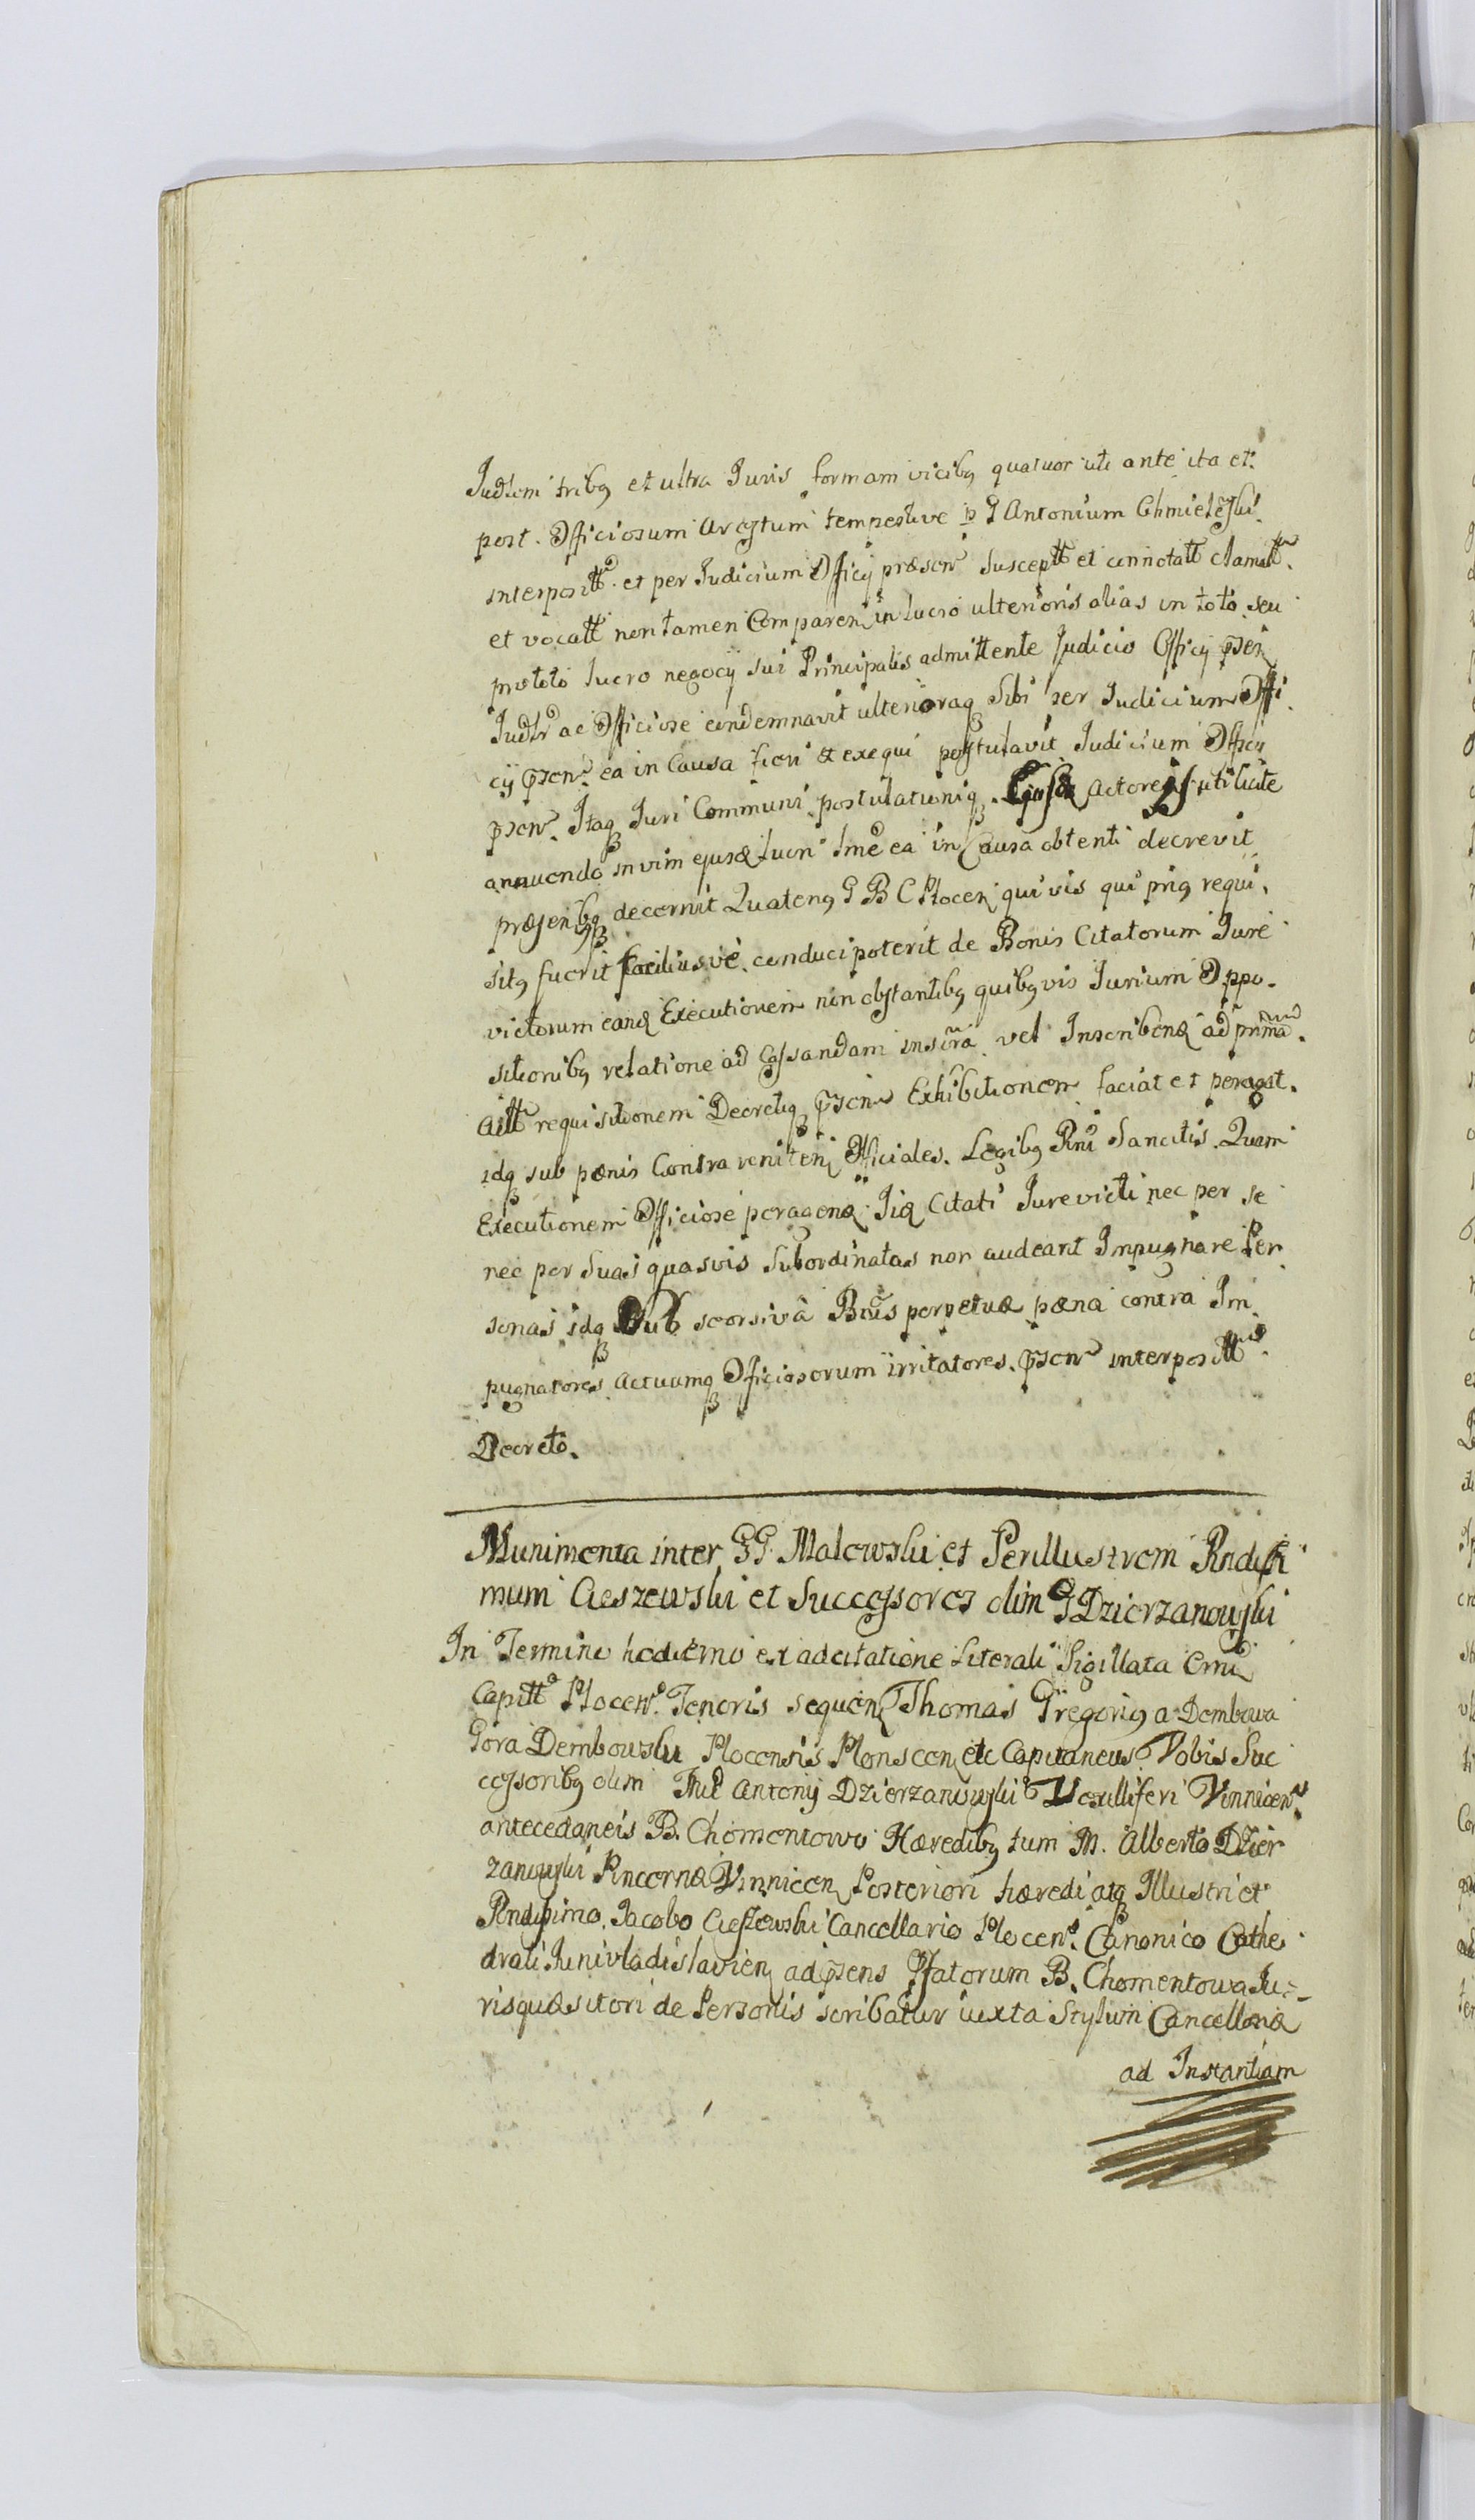 Judlem tribq et ultra Juris formam vicibq quatuor uti ante ita et
post. Officiosum arestum tempestive p G Antonium Chmieleski
interpositt et per Judicium Officij præsen Susceptt et connotatt clamatt
et vocatt non tamen Comparen in lucro ulterioris alias in toto seu
pro toto lucro negocij sui Principalis admittente Judicio Officij psen
Judlr ac Officiose condemnavit ulterioraq Sibi per Judicium Offi
cij psen ea in Causa fieri et exequi postulavit Judicium Officij
psen. Itaq Juri Communi postulationiq Ejusd Actorei utiliate
annuendo in vim ejusd lucri Ime ea in Causa obtenti decrevit
præsentibq decernit Quatenq G B C Plocen quivis qui priq requi.
sitq fuerit faciliusve conduci poterit de Bonis Citatorum Jure
victorum eand Executionem non obstantibq quibqvis Jurium Oppo.
sitionibq relatione ad Cassandam inscra vel Inscribend ad primã
Aitt requisitionem Decretiq psen Exhibitionem faciat et peragat.
idq sub pænis Contra reniten Officiales. Legibq Rni Sancitis. Quam
Executionem Officiose peragend Jid Citati Jurevicti nec per se
nec per Suas quasvis Subordinatas non audeant Impugnare Per
sonas idq Sub seorsiva Bnis perpetuæ pæna contra Im
pugnatores Actuumq Officiosorum irritatores. psen interpositt
Decreto.
Munimenta inter GG. Malewski et Perillustrem Rndissi
mum Cieszewski et Successores olim G Dzierzanowski
In Termino hodierno ex adcitatione Literali Sigillata Orni
Capitt Plocen. Tenoris sequen Thomas Gregoriq a Dembowa
Gora Dembowski Plocensis Plonscen etc Capitaneus. Vobis Suc
cessoribq olim Antonij Dzierzanowski Vexilliferi Vinnicen
antecedaneis B. Chomentowo Hæredibq tum M. Alberto Dzier
zanowski Pincernæ Vinnicen Posteriori hæredi atq Illustri et
Rndissimo Jacobo Cieszewski Cancellario Plocen. Canonico Cathe
drali Junivladislavien ad psens Pfatorum B. Chomentowa Ju-
risquæsitori de Personis scribatur iuxta Stylum Cancellariæ
ad Instantiam